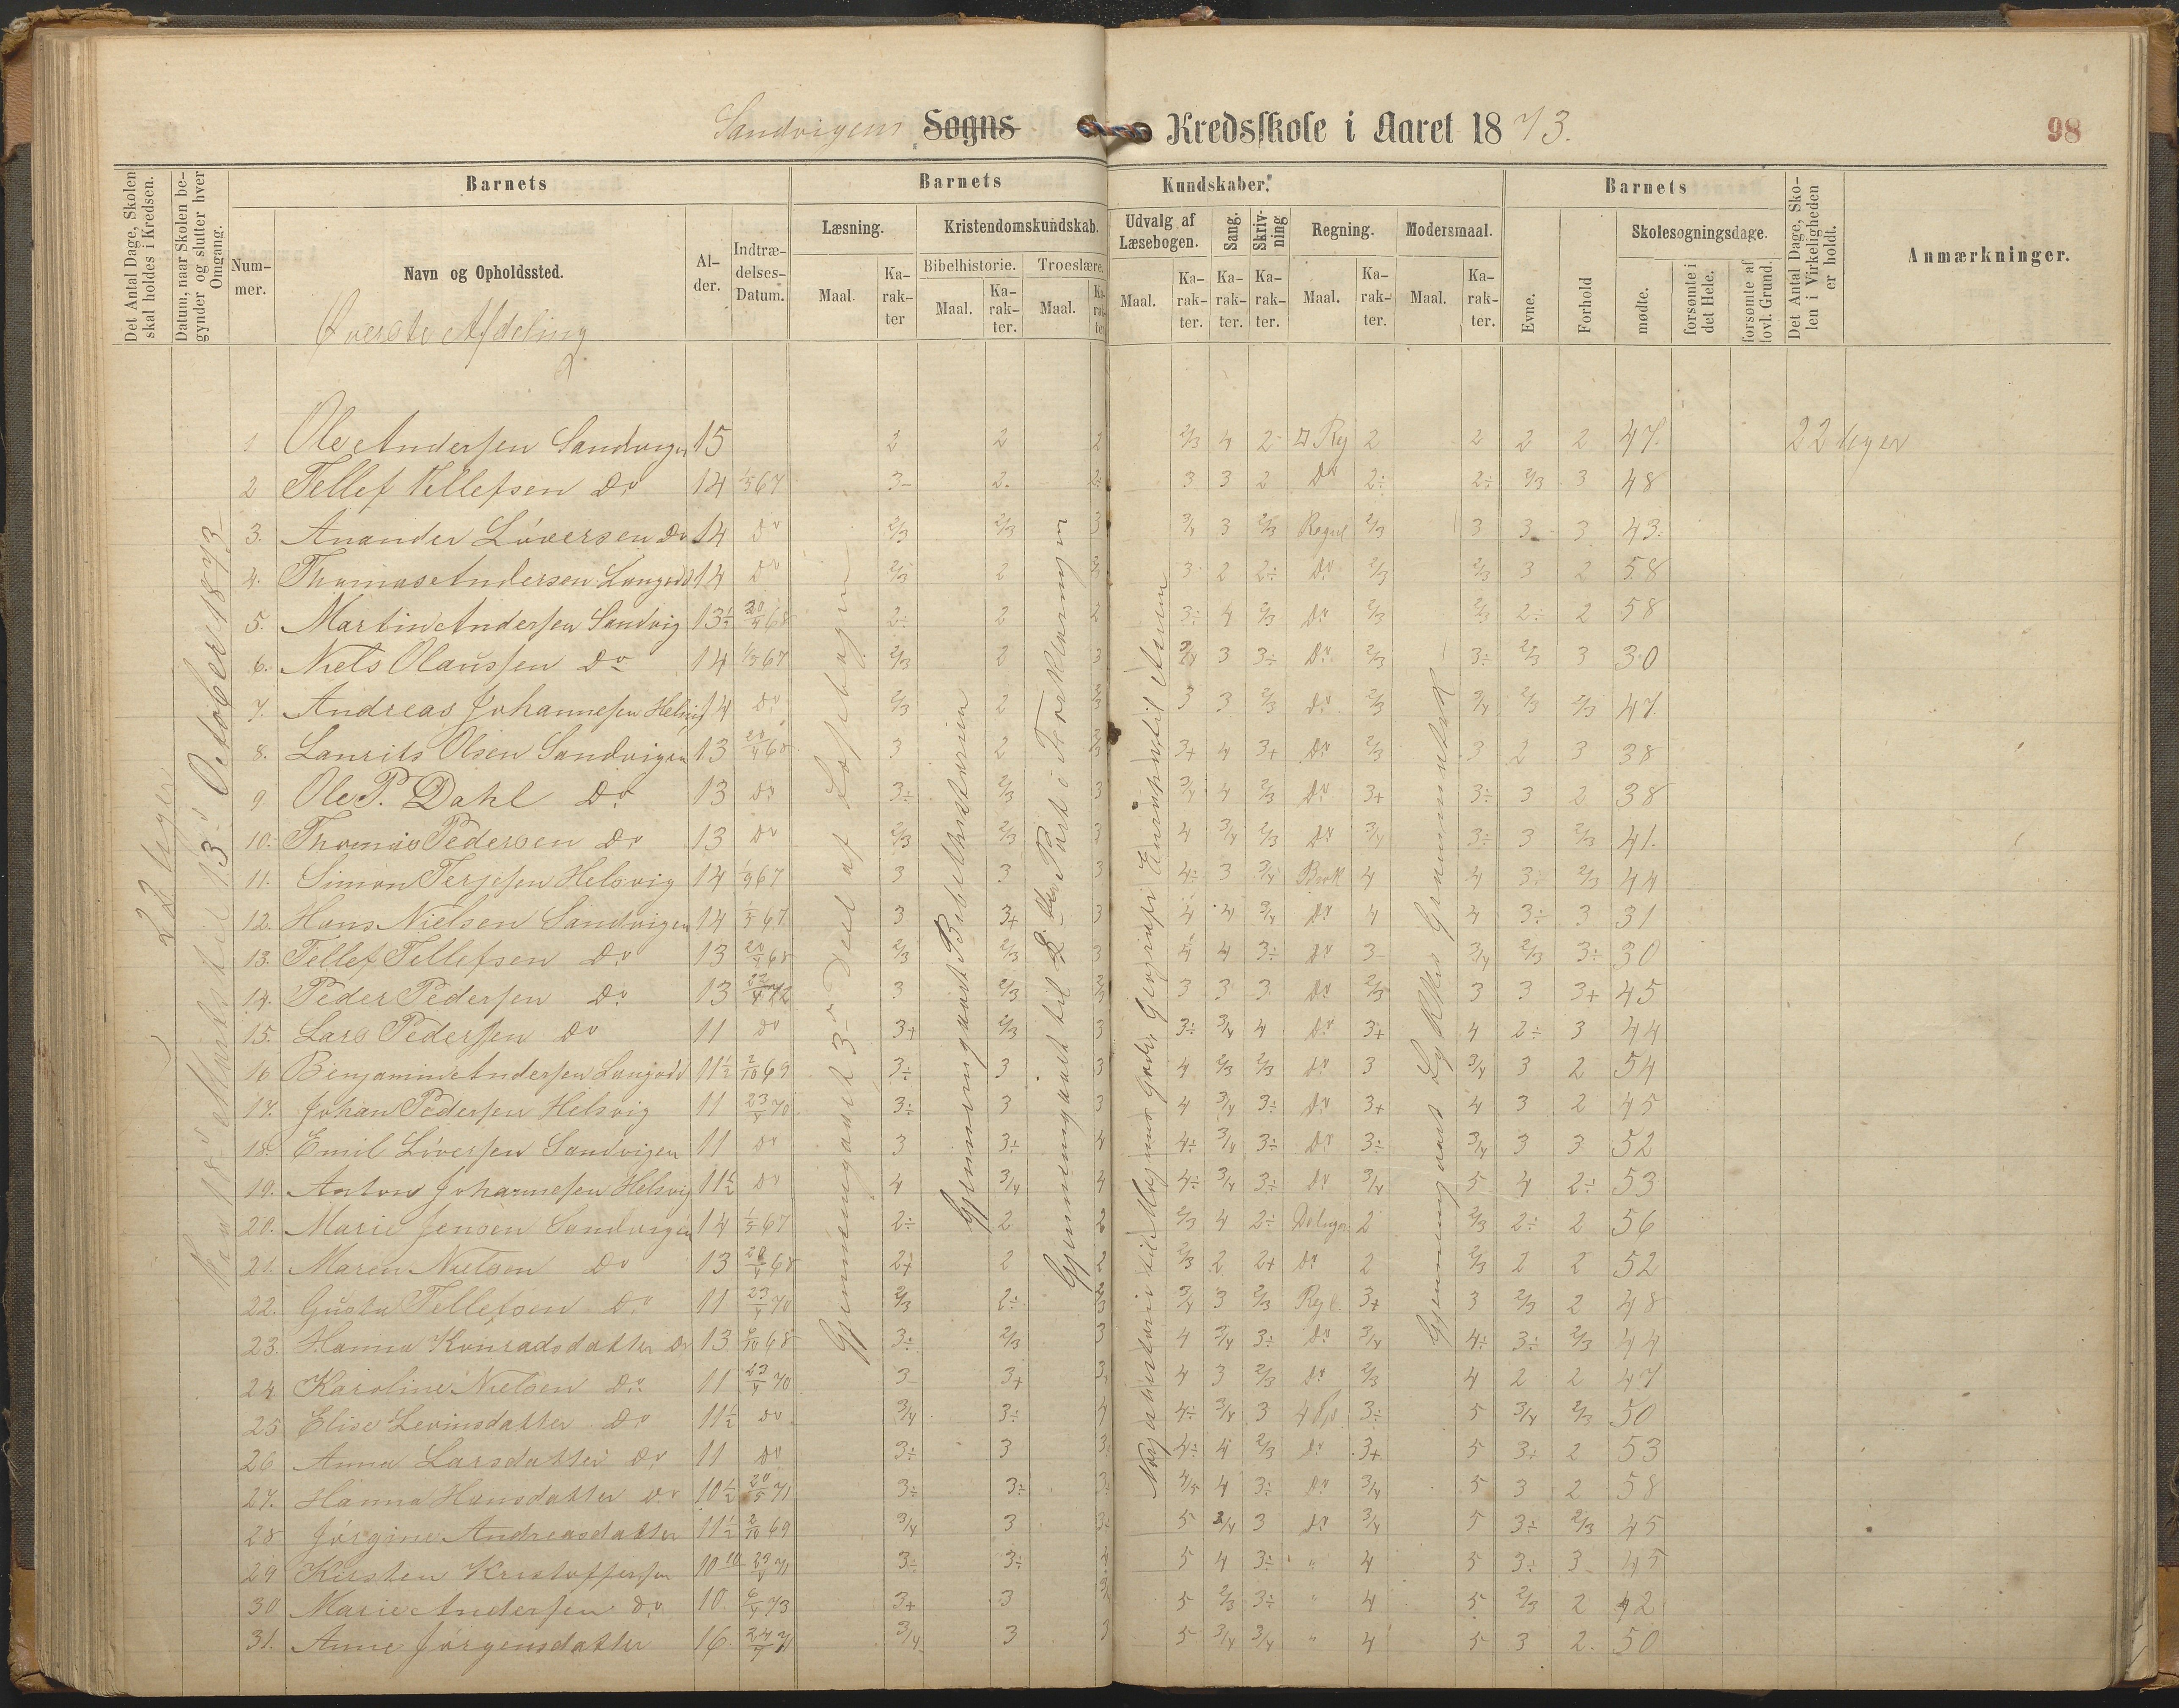 Sandvigens Sogns Kredsskole i Aaret 1873.
98
Det Antal Dage, Skolen skal holdes i Kredsen.
Datum, naar Skolen begynder og slutter hver Omgang.
Barnets
Nummer.
Navn og Opholdssted.
Alder.
Indtrædelses-Datum.
Barnets
Kundskaber.
Læsning.
Kristendomskundskab.
Bibelhistorie.
Troeslære.
Udvalg af Læsebogen.
Sang.
Skrivning
Regning.
Modersmaal.
Maal.
Karakter
Barnets
Evne.
Forhold
Skolesøgningsdage.
mødte.
forsømte i det Hele.
forsømte af lovl. Grund.
Det Antal Dage, Skolen i Virkeligheden er holdt.
Anmærkninger.
Øverste Afdeling
22 Uger
Fra 18de Marts til 13de October 1873
Gjennemgaaet 3de Deel af Læsebogen
Gjennemgaaet Bibelhistorien
Gjennemgaaet til Part i Forklaringen
Gjennemgaaet Løkkes Grammatik
1. Ole Andersen Sandvigen 15 2 2 2 2/3 4 2 Reg 2 2 2 2 47. 22 Uger
2 Tellef Tellefsen Do 14 1/5 67 3- 2. 2÷ 3 3 2 Do 2÷ 2÷ 2/3 3 48
3. Anander Løversen Do 14 Do 2/3 2/3 3 3/4 3 2/3 Regul 2/3 3 3 3 43.
4. Thomas Andersen Langodd 14 Do 2/3 2 2/3 3 2 2÷ Do 2/3 2/3 3 2 58
5. Martin Andersen Sandvig 13½ 20/4 68 2÷ 2 2 3÷ 4 2/3 Do 2/3 2/3 2÷ 2 58
6. Niels Olaussen Do 14 1/5 67 2/3 2 3 3/4 3 3÷ Do 2/3 3÷ 2/3 3 30
7. Andreas Johannesen Helsvig 14 Do 2/3 2 2/3 3 3 2/3 Do 2/3 3/4 2/3 2/3 47.
8. Laurits Olsen Sandvigen 13 20/4 68 3 2 2/3 3+ 4 3+ Do 2/3 3 2 3 38
9. Ole P. Dahl Do 13 Do 3÷ 2/3 3 3/4 4 2/3 Do 3+ 3÷ 3 2 38
10. Thomas Pedersen Do 13 Do 2/3 2/3 3 4 3/4 2/3 Do 3/4 3÷ 3 2/3 41.
11. Simon Terjesen Helsvig 14 1/9 67 3 3 3 4÷ 3 3/4 Brøk 4 4 3÷ 2/3 44
12. Hans Nielsen Sandvigen 14 1/5 67 3 3+ 3 4 4 3/4 Do 4 4 3÷ 3 31
13. Tellef Tellefsen Do 13 20/4 68 2/3 2/3 3 4 4 3÷ Do 3- 3/4 2/3 3÷ 30
14. Peder Pedersen Do 13 22/4 72 3 2/3 2/3 3 3 3 Do 2/3 3 3 3+ 45
15. Lars Pedersen Do 11 Do 3+ 2/3 3 3÷ 3/4 4 Do 3+ 4 2÷ 3 44
16 Benjamin Andersen Langodd 11½ 2/10 69 3÷ 3 3 4 2/3 2/3 Do 3 3/4 3 2 54
17. Johan Pedersen Helsvig 11 23/4 70 3÷ 3 3 4 3/4 3÷ Do 3+ 4 3 2 45
18. Emil Løversen Sandvigen 11 Do 3 3÷ 4 4÷ 3/4 3÷ Do 3÷ 3/4 3 3 52
19. Anton Johannesen Helsvig 11½ Do 4 3/4 4 4÷ 3/4 3÷ Do 3/4 5 4 2÷ 53
20. Marie Jensen Sandvigen 14 1/5 67 2÷ 2 2 2/3 4 2÷ 2 2/3 2÷ 2 56
21. Maren Nielsen Do 13 20/4 68 2+ 2 2 2/3 2 2+ Do 2 2/3 2 2 52
22. Gusta Tellefsen Do 11 23/4 70 2/3 2÷ 2/3 3/4 3 2/3 3+ 3 2/3 2 48
23. Hanna Konradsdatter Do 13 6/10 68 3÷ 2/3 3 4 3/4 3÷ Do 3/4 4÷ 3÷ 2/3 44
24 Karoline Nielsen Do 11 23/4 70 3- 3+ 3 4 3 2/3 Do 2/3 4 2 2 47
25 Elise Levinsdatter Do 11½ Do 3/4 3÷ 4 4÷ 3/4 3 3÷ 5 3/4 2/3 50
26 Anna Larsdatter Do 11 Do 3÷ 3 3÷ 4÷ 4 2/3 Do 3+ 5 3÷ 2 53
27. Hanna Hansdatter Do 10½ 20/5 71 3÷ 3÷ 3÷ 4/5 4 3÷ Do 3/4 5 3 2 58
28 Jørgine Andreasdatter 11½ 2/10 69 3/4 3 3÷ 5 3/4 3 Do 3/4 5 3÷ 2/3 45
29 Kirsten Kristoffersen 10 3÷ 3÷ 4 5 4 3÷ " 4 5 3÷ 3 45
30 Marie Andersen Do 10 6/4 73 3+ 3 3/4 5 2/3 3÷ " 4 5 2/3 2 42
31. Anne Jørgensdatter 16 3/4 3 3 5 3/4 3/4 " 4 5 3 2. 50